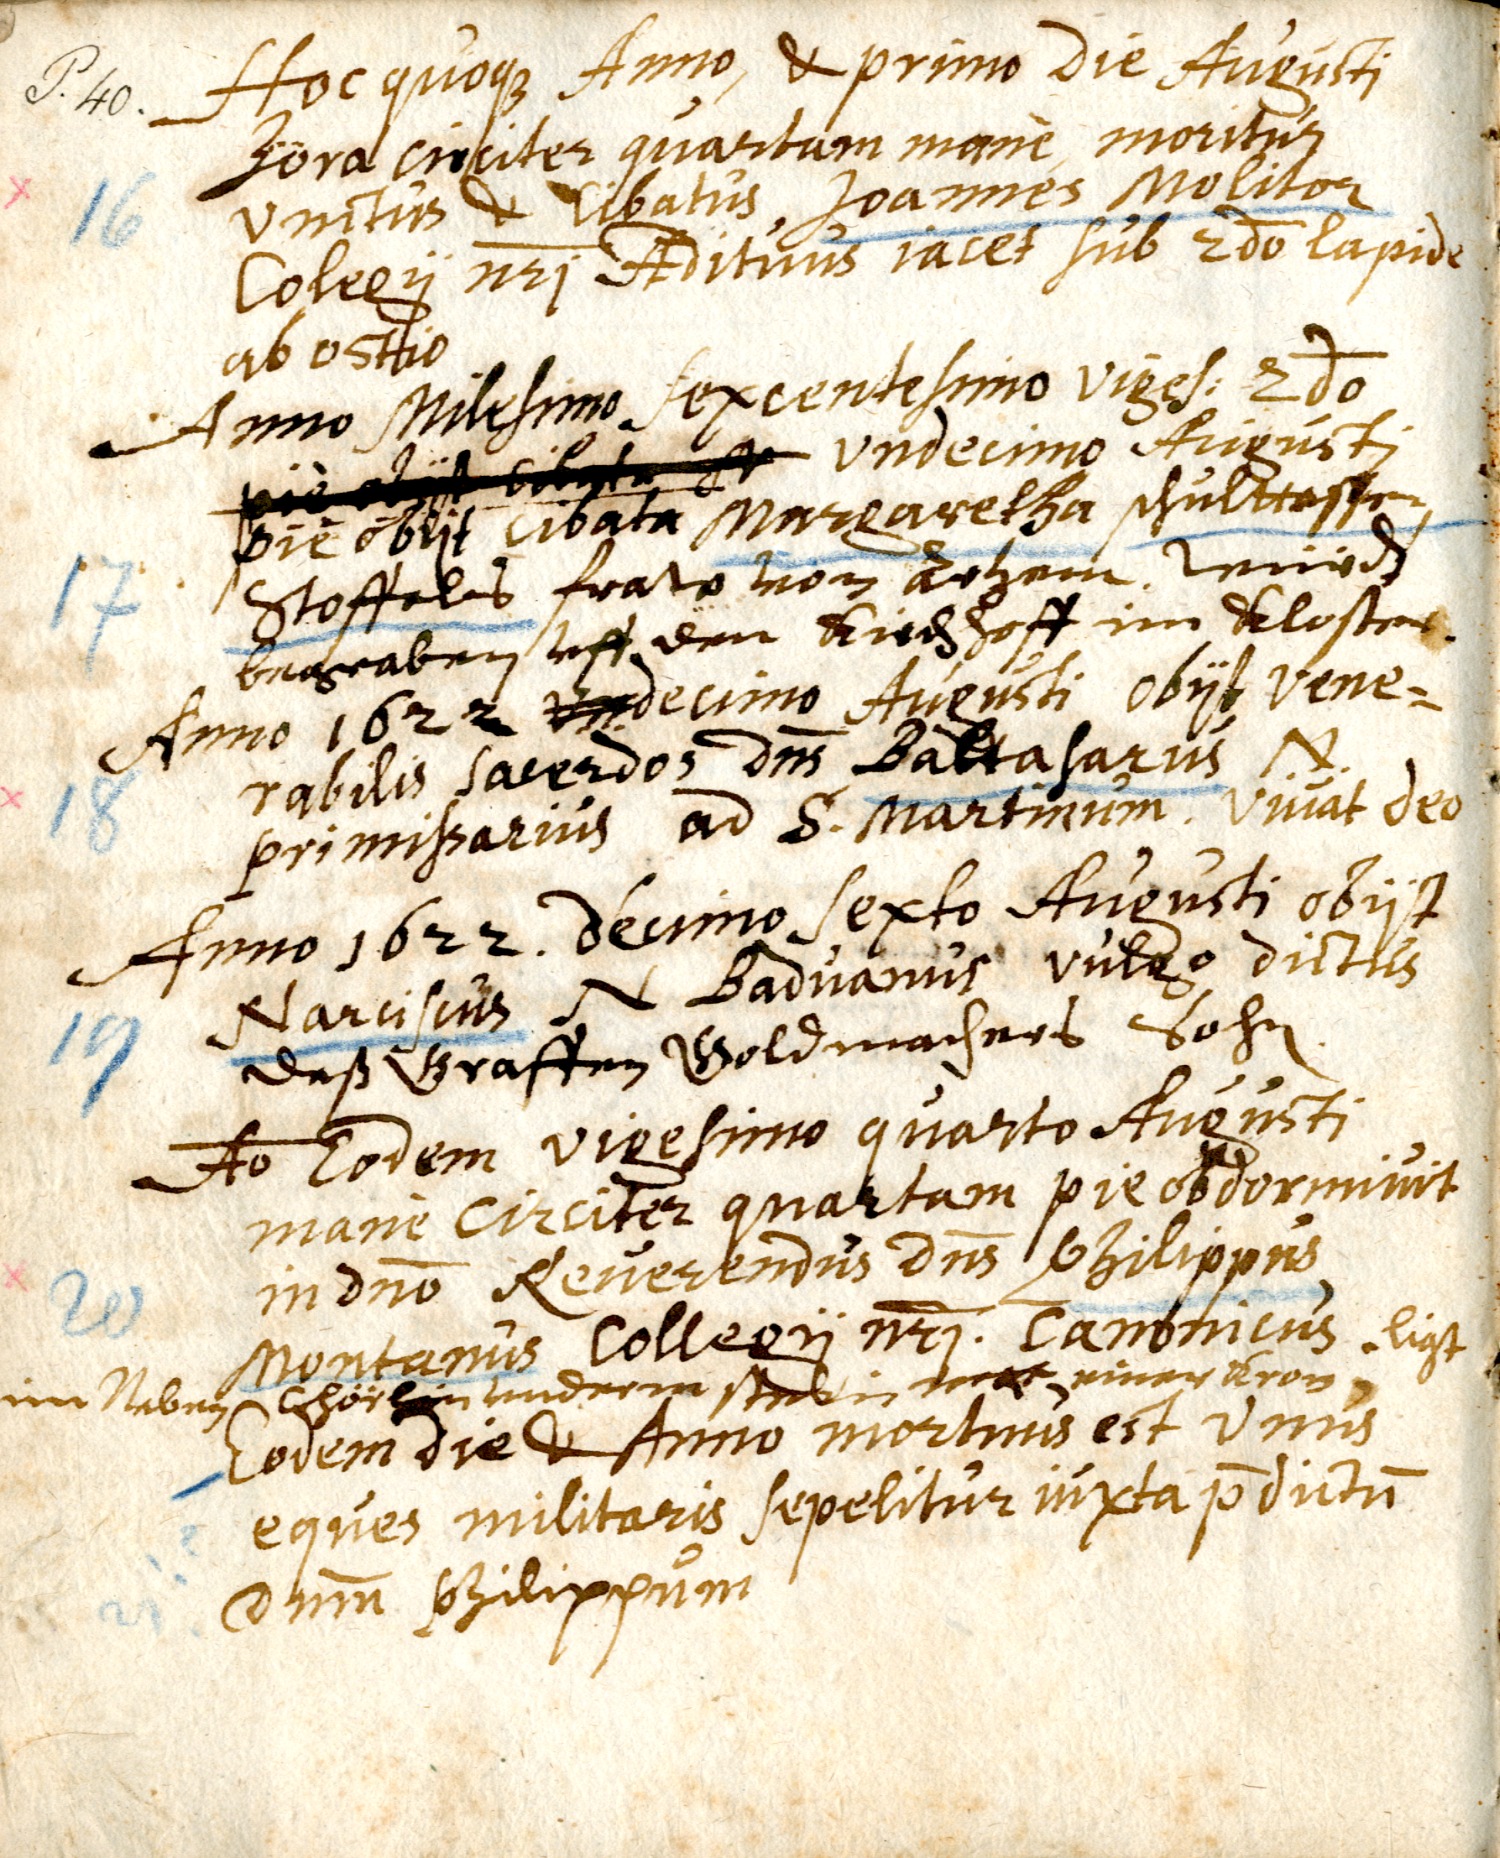 P. 40.
Hoc quoqꝫ Anno, & primo Die Augusti
hora circiter quartam manè moritur
16
vnctus & Cibatus Joannes Molitor
Colegij nr̅j Ædituus iacet sub 2do̅ lapide
ab ostio
Anno Milesimo sexcentesimo viges: 2do̅
piè obijt cibata & vndecimo Augusti
piè obijt cibata Margaretha
17
Stoffeles fraw von . wurdt
begraben vff den Kirchhoff im Kloster.
Anno 1622 vndecimo Augusti obijt vene=
rabilis sacerdos dn̅s Baltasarus N.
18
primissarius ad S. Martinum. vivat deo
Anno 1622. decimo sexto Augusti obijt
Narcissus N Baduanus vulgo dictus
19
deß Graffen Goldmachers Sohn
Ao̅ Eodem vigesimo quarto Augusti
manè circiter quartam pie obdormiuit
in dn̅o Reuerendus dn̅s Philippus
20
Montanus Collegij nr̅j. Canonicus. ligt
im Neben Chörlin vnderm stein einer Kron
Eodem die & Anno mortuus est vnus
eques militaris sepelitur iuxta p̅dictu̅
21.
dn̅m Philippum